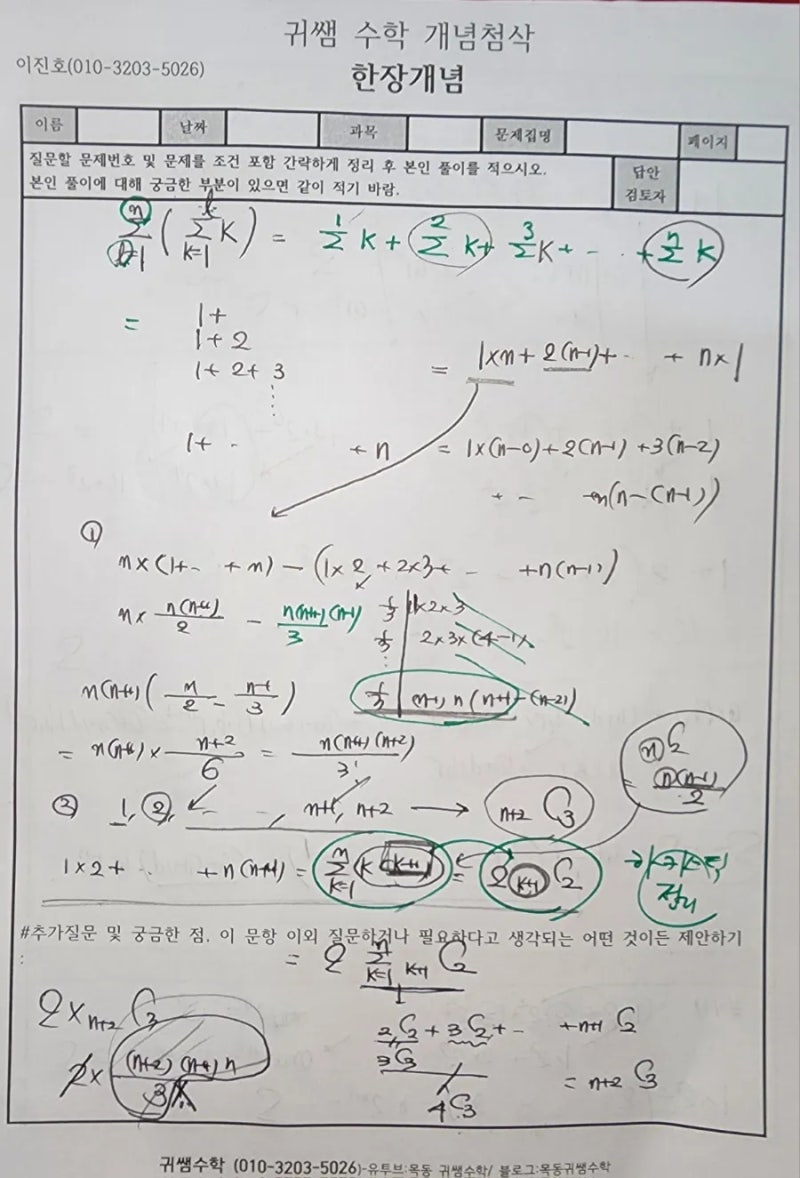 귀쌤 수학 개념첨삭
이진호(010-3203-5026)
한장개념
이름 날짜 과목 문제집명 페이지
질문할 문제번호 및 문제를 조건 포함 간략하게 정리 후 본인 풀이를 적으시오.
본인 풀이에 대해 궁금한 부분이 있으면 같이 적기 바람.
답안
검토자
n l
Σ ( Σ K ) = 1Σ K + 2Σ K + 3Σ K + - · + nΣ K
l=1 k=1
= 1+
1+2
1+2+3
= 1×n + 2(n-1) + · + n×1
1+ · + n = 1×(n-0)+2(n-1)+3(n-2)
+ - n(n-(n-1))
①
n×(1+- +n) - (1×2+2×3+ - +n(n-1))
n× n(n+1)/2 - n(n+1)(n-1)/3
1/3 | 1×2×3
1/3 | 2×3×(4-1)
1/3 | (n-1)n(n+1-(n-2))
n(n+1)( n/2 - n-1/3 )
= n(n+1)× n+2/6 = n(n+1)(n+2)/3!
nC2
= n(n-1)/2
② 1, 2, , n+1, n+2 → n+2C3
1×2+ · +n(n+1) = nΣk=1 (k(k+1)) = 2 k+1C2
정리
#추가질문 및 궁금한 점. 이 문항 이외 질문하거나 필요하다고 생각되는 어떤 것이든 제안하기
:
= 2 nΣk=1 k+1C2
2×n+2C3
2× (n+2)(n+1)n/3!
2C2 + 3C2 + - +n+1C2
3C3
= n+2C3
4C3
귀쌤수학 (010-3203-5026)-유투브:목동 귀쌤수학/ 블로그:목동귀쌤수학